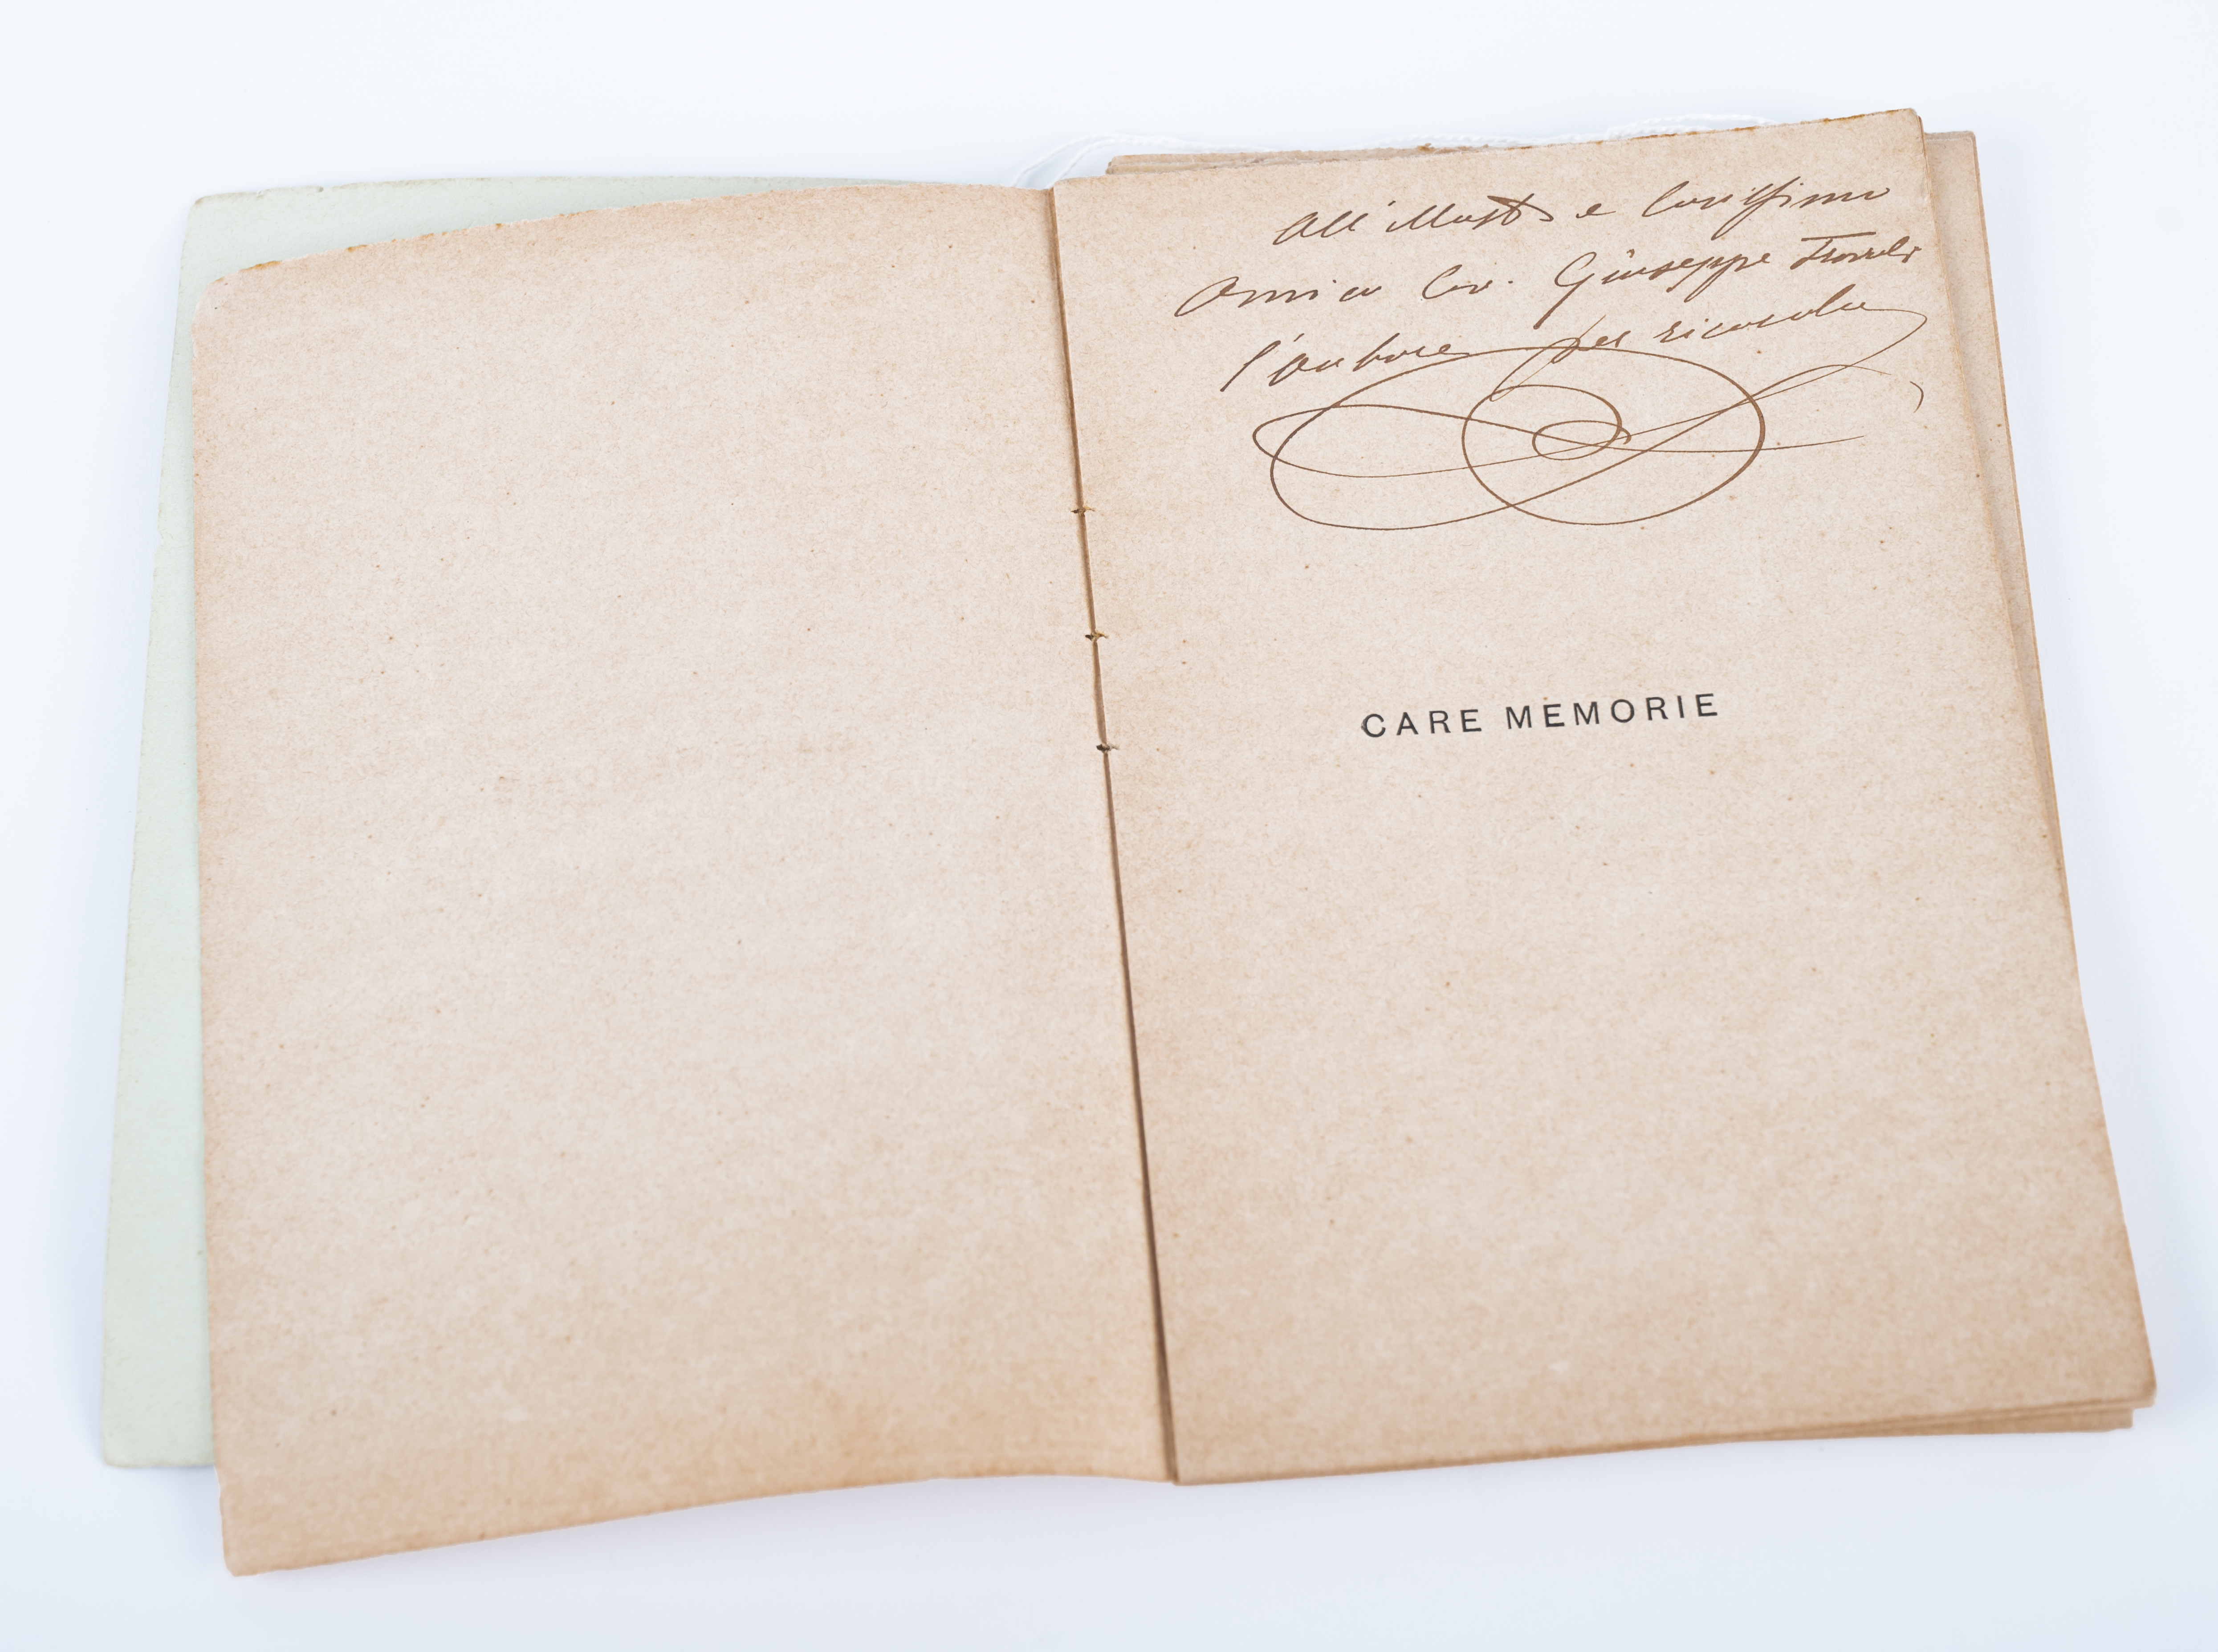 All'illust e Carissimo
Amico Cav. Giuseppe
l'autore per ricordo
CARE MEMORIE